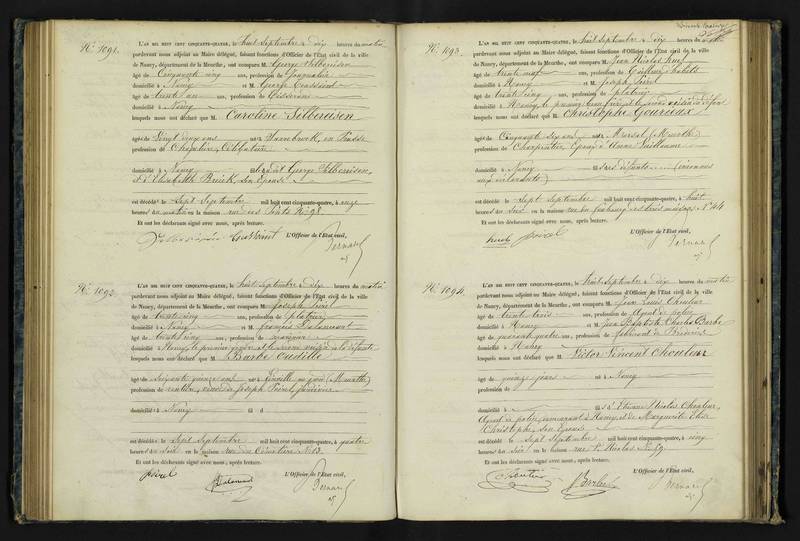 N° 1091.
L'AN MIL HUIT CENT CINQUANTE-QUATRE, le huit Septembre à dix heures du matin
pardevant nous adjoint au Maire délégué, faisant fonctions d'Officier de l'État civil de la ville
de Nancy, département de la Meurthe, ont comparu M. George Silbereisen
âgé de Cinquante cinq ans, profession de Journalier
domicilié à Nancy et M. George
âgé de trente un ans, profession de Tisserand
domicilié à Nancy
lesquels nous ont déclaré que M. Caroline Silbereisen
âgée de Vingt deux ans né à en Prusse
profession de Célibataire
domiciliée à Nancy fille dudit George Silbereisen,
et d'Elisabeth son Epouse
est décédée le Sept Septembre mil huit cent cinquante-quatre, à onze
heures du matin en la maison rue des Ponts N° 98.
Et ont les déclarants signé avec nous, après lecture.
L'Officier de l'État civil,
Bernard
N° 1092.
L'AN MIL HUIT CENT CINQUANTE-QUATRE, le huit Septembre à dix heures du matin
pardevant nous adjoint au Maire délégué, faisant fonctions d'Officier de l'État civil de la ville
de Nancy, département de la Meurthe, ont comparu M. Joseph Poirel
âgé de trente cinq ans, profession de platrier
domicilié à Nancy et M. françois Dalancourt
âgé de trente cinq ans, profession de
domicilié à Nancy, le premier et le second voisin de la défunte
lesquels nous ont déclaré que M. Barbe Cudille
âgée de Soixante quinze ans né à Einville au jard (Meurthe)
profession de rentière, veuve de Joseph Poirel,
domiciliée à Nancy fil d
est décédée le Sept Septembre mil huit cent cinquante-quatre, à quatre
heures du Soir en la maison rue du Cimetière N° 63.
Et ont les déclarants signé avec nous, après lecture.
L'Officier de l'État civil,
poirel
Bernard
N° 1093.
L'AN MIL HUIT CENT CINQUANTE-QUATRE, le huit Septembre à dix heures du matin
pardevant nous adjoint au Maire délégué, faisant fonctions d'Officier de l'État civil de la ville
de Nancy, département de la Meurthe, ont comparu M. Jean Nicolas
âgé de trente neuf ans, profession de Tailleur d'habits
domicilié à Nancy et M. Joseph Poirel
âgé de trente cinq ans, profession de platrier
domicilié à Nancy, le premier et le second voisin du défunt
lesquels nous ont déclaré que M. Christophe Gourieux
âgé de Cinquante six ans né à Marsal (Meurthe)
profession de Charpentier, Epoux d'Anne Vuillaume
domicilié à Nancy fils de défunts (inconnus
aux déclarants)
est décédé le Sept Septembre mil huit cent cinquante-quatre, à huit
heures du Soir en la maison rue du faubourg des trois maisons N° 44
Et ont les déclarants signé avec nous, après lecture.
L'Officier de l'État civil,
poirel
Bernard
N° 1094.
L'AN MIL HUIT CENT CINQUANTE-QUATRE, le huit Septembre à dix heures du matin
pardevant nous adjoint au Maire délégué, faisant fonctions d'Officier de l'État civil de la ville
de Nancy, département de la Meurthe, ont comparu M. Jean Louis Chouleur
âgé de trente trois ans, profession de Agent de police
domicilié à Nancy et M. Jean Baptiste Charles Barbe
âgé de quarante quatre ans, profession de fabricant de Broderies
domicilié à Nancy
lesquels nous ont déclaré que M. Victor Vincent Chouleur
âgé de quinze jours né à Nancy
profession de
domicilié à fils d'Etienne Nicolas Chouleur,
Agent de police, demeurant à Nancy, et de Marguerite Elise
Christophe, son Epouse
est décédé le Sept Septembre mil huit cent cinquante-quatre, à cinq
heures du Soir en la maison rue St. Nicolas N° 59
Et ont les déclarants signé avec nous, après lecture.
L'Officier de l'État civil,
Bernard